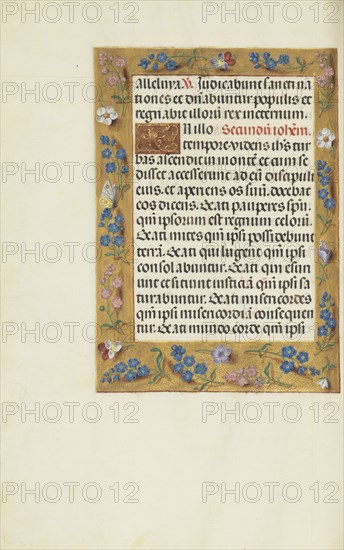 alleluya. V. Iudicabunt sancti na
tiones et dn̄abuntur populis et
regnabit illorū rex in eternum.
IN illo Secundū iohēm
tempore. videns ihs̄ tur
bas ascendit in montē et cum se
disset accesserūt ad eū discipuli
eius. et aperiens os suū. doceebat
eos dicens. Beati pauperes spū.
qm̄ ipsorum est regnum celorū.
Beati mites qm̄ ipsi possidebunt
terrā. Beati qui lugent qm̄ ipsi
consolabuntur. Beati qui esuri
unt et sitiunt iusticiam qm̄ ipsi sa
turabuntur. Beati misericordes
qm̄ ipsi misericordiā consequen
tur. Beati mundo corde qm̄ ipsi
PHOTO 12